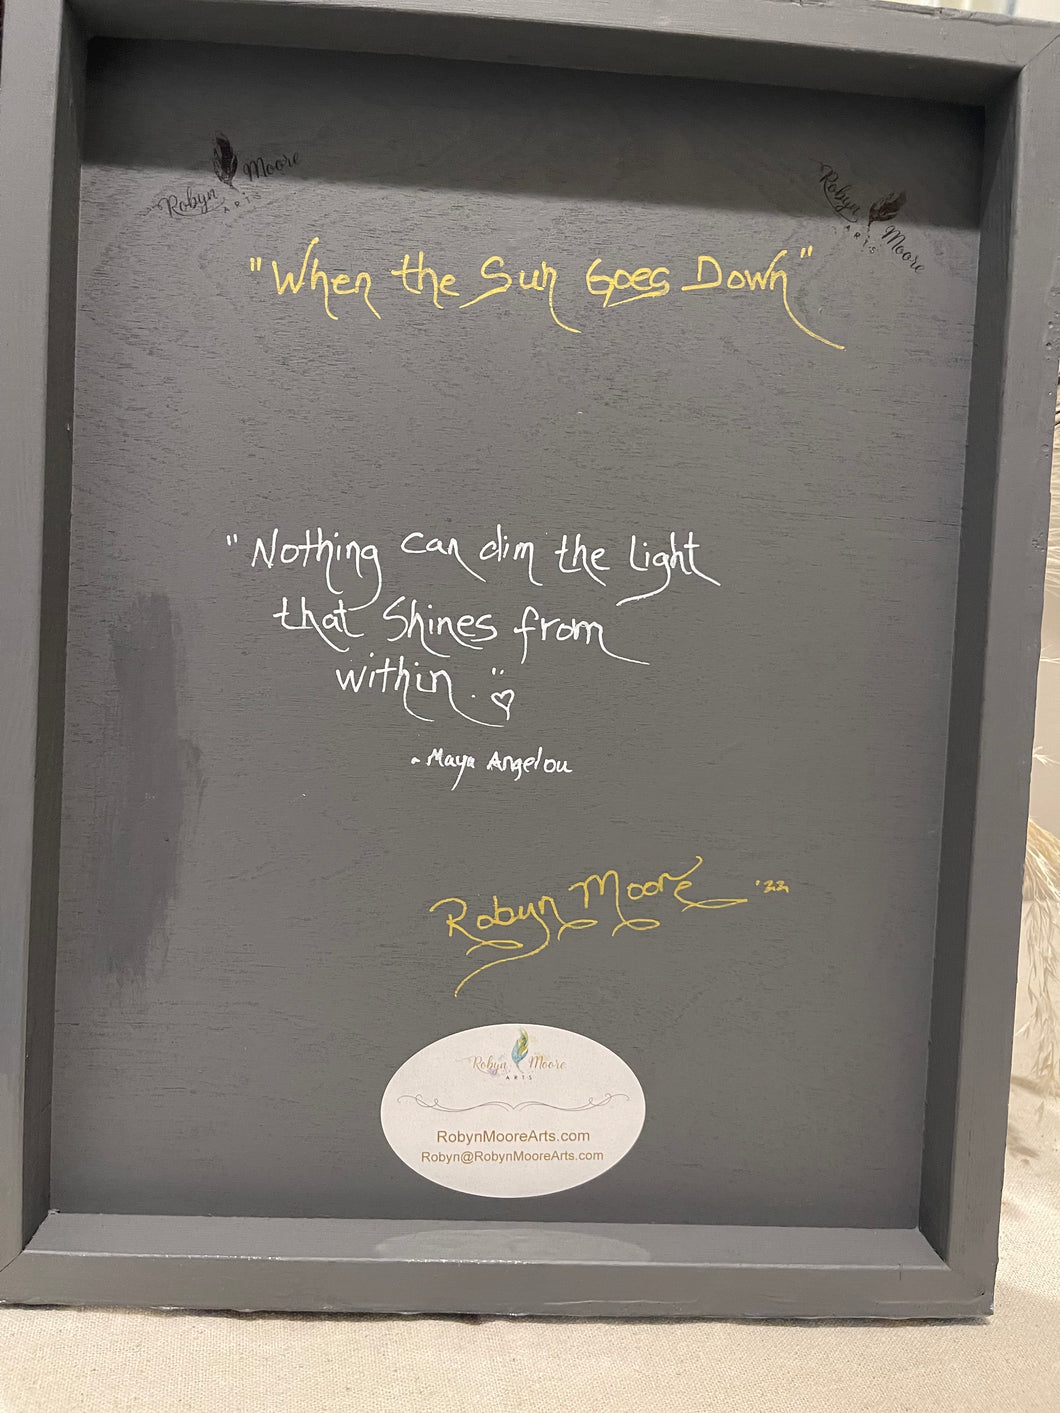 Robyn Moore
ARTS
Robyn Moore
ARTS
"When the Sun Goes Down"
"Nothing can dim the light
that Shines from
within."
- Maya Angelou
Robyn Moore '22
Robyn Moore
ARTS
RobynMooreArts.com
Robyn@RobynMooreArts.com